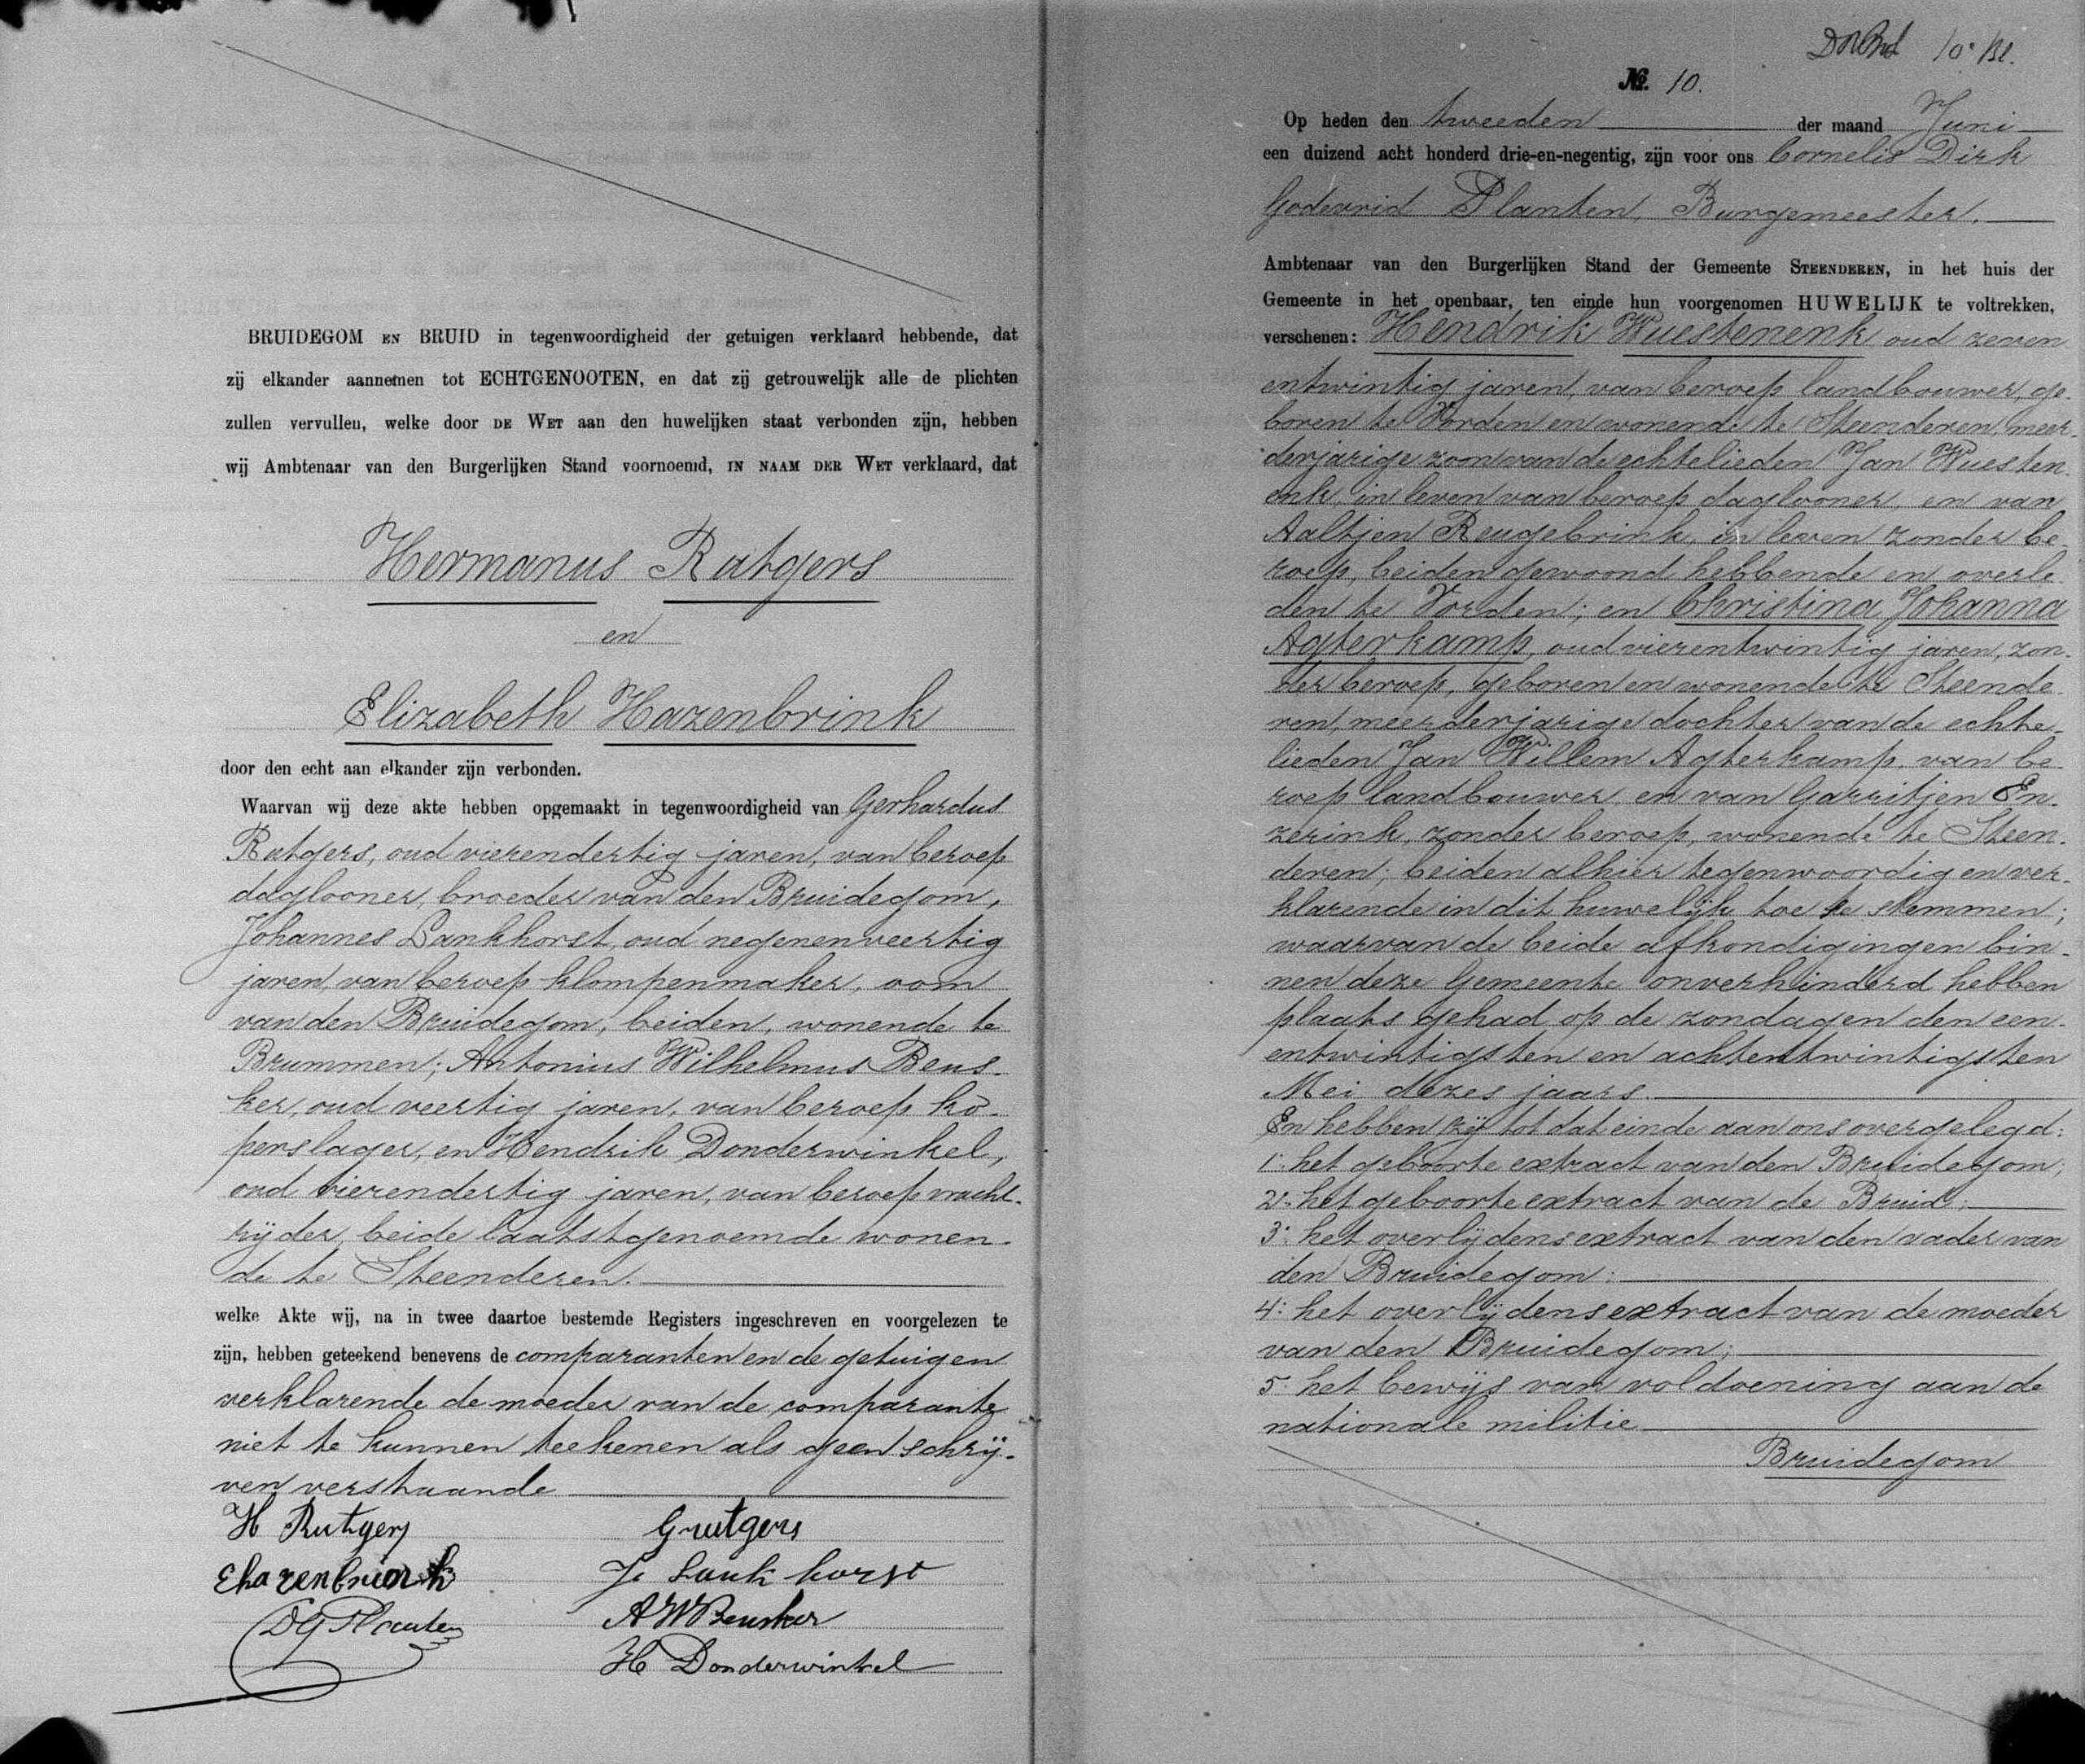 BRUIDEGOM EN BRUID in tegenwoordigheid der getuigen verklaard hebbende, dat
zij elkander aannemen tot ECHTGENOOTEN, en dat zij getrouwelijk alle de plichten
zullen vervullen, welke door DE WET aan den huwelijken staat verbonden zijn, hebben
wij Ambtenaar van den Burgerlijken Stand voornoemd, IN NAAM DER WET verklaard, dat
Hermanus Rutgers
en
Elizabeth Hazenbrink
door den echt aan elkander zijn verbonden.
Waarvan wij deze akte hebben opgemaakt in tegenwoordigheid van Gerhardus
Rutgers, oud vierendertig jaren, van beroep
daglooner, broeder van den Bruidegom,
Johannes Lankhorst, oud negenenveertig
jaren, van beroep klompenmaker, oom
van den Bruidegom, beiden, wonende te
Brummen; Antonius Wilhelmus Beus-
ker, oud veertig jaren, van beroep ko-
perslager, en Hendrik Donderwinkel,
oud vierendertig jaren, van beroep vracht-
rijder, beide laatstgenoemde wonen-
de te Steenderen.
welke Akte wij, na in twee daartoe bestemde Registers ingeschreven en voorgelezen te
zijn, hebben geteekend benevens de comparanten en de getuigen
verklarende de moeder van de comparante
niet te kunnen teekenen als geen schrij-
ven verstaande
H Rutgers
G rutgers
E hazenbrink
J. Lankhorst
DG Planten
AW Beusker
H Donderwinkel
10e Bl.
No. 10.
Op heden den tweeden der maand Juni
een duizend acht honderd drie-en-negentig, zijn voor ons Cornelis Dirk
Godevrid Planten, Burgemeester,
Ambtenaar van den Burgerlijken Stand der Gemeente STEENDEREN, in het huis der
Gemeente in het openbaar, ten einde hun voorgenomen HUWELIJK te voltrekken,
verschenen: Hendrik Wuestenenk oud zeven
entwintig jaren, van beroep landbouwer, ge-
boren te Vorden en wonende te Steenderen, meer-
derjarige zoon van de echtelieden Jan Wuesten-
enk, in leven van beroep daglooner, en van
Aaltjen Reugebrink, in leven zonder be-
roep, beiden gewoond hebbende en overle-
den te Vorden; en Christina Johanna
Agterkamp, oud vierentwintig jaren, zon-
der beroep, geboren en wonende te Steende-
ren, meerderjarige dochter van de echte-
lieden Jan Willem Agterkamp, van be-
roep landbouwer en van Garritjen En-
zerink, zonder beroep, wonende te Steen-
deren; beiden alhier tegenwoordig en ver-
klarende in dit huwelijk toe te stemmen;
waarvan de beide afkondigingen bin-
nen deze Gemeente onverhinderd hebben
plaats gehad op de zondagen den een-
entwintigsten en achtentwintigsten
Mei dezes jaars.
En hebben zij tot dat einde aan ons overgelegd:
1: het geboorte extract van den Bruidegom;
2: het geboorte extract van de Bruid;
3: het overlijdens extract van den vader van
den Bruidegom;
4: het overlijdens extract van de moeder
van den Bruidegom;
5: het bewijs van voldoening aan de
nationale militie
Bruidegom